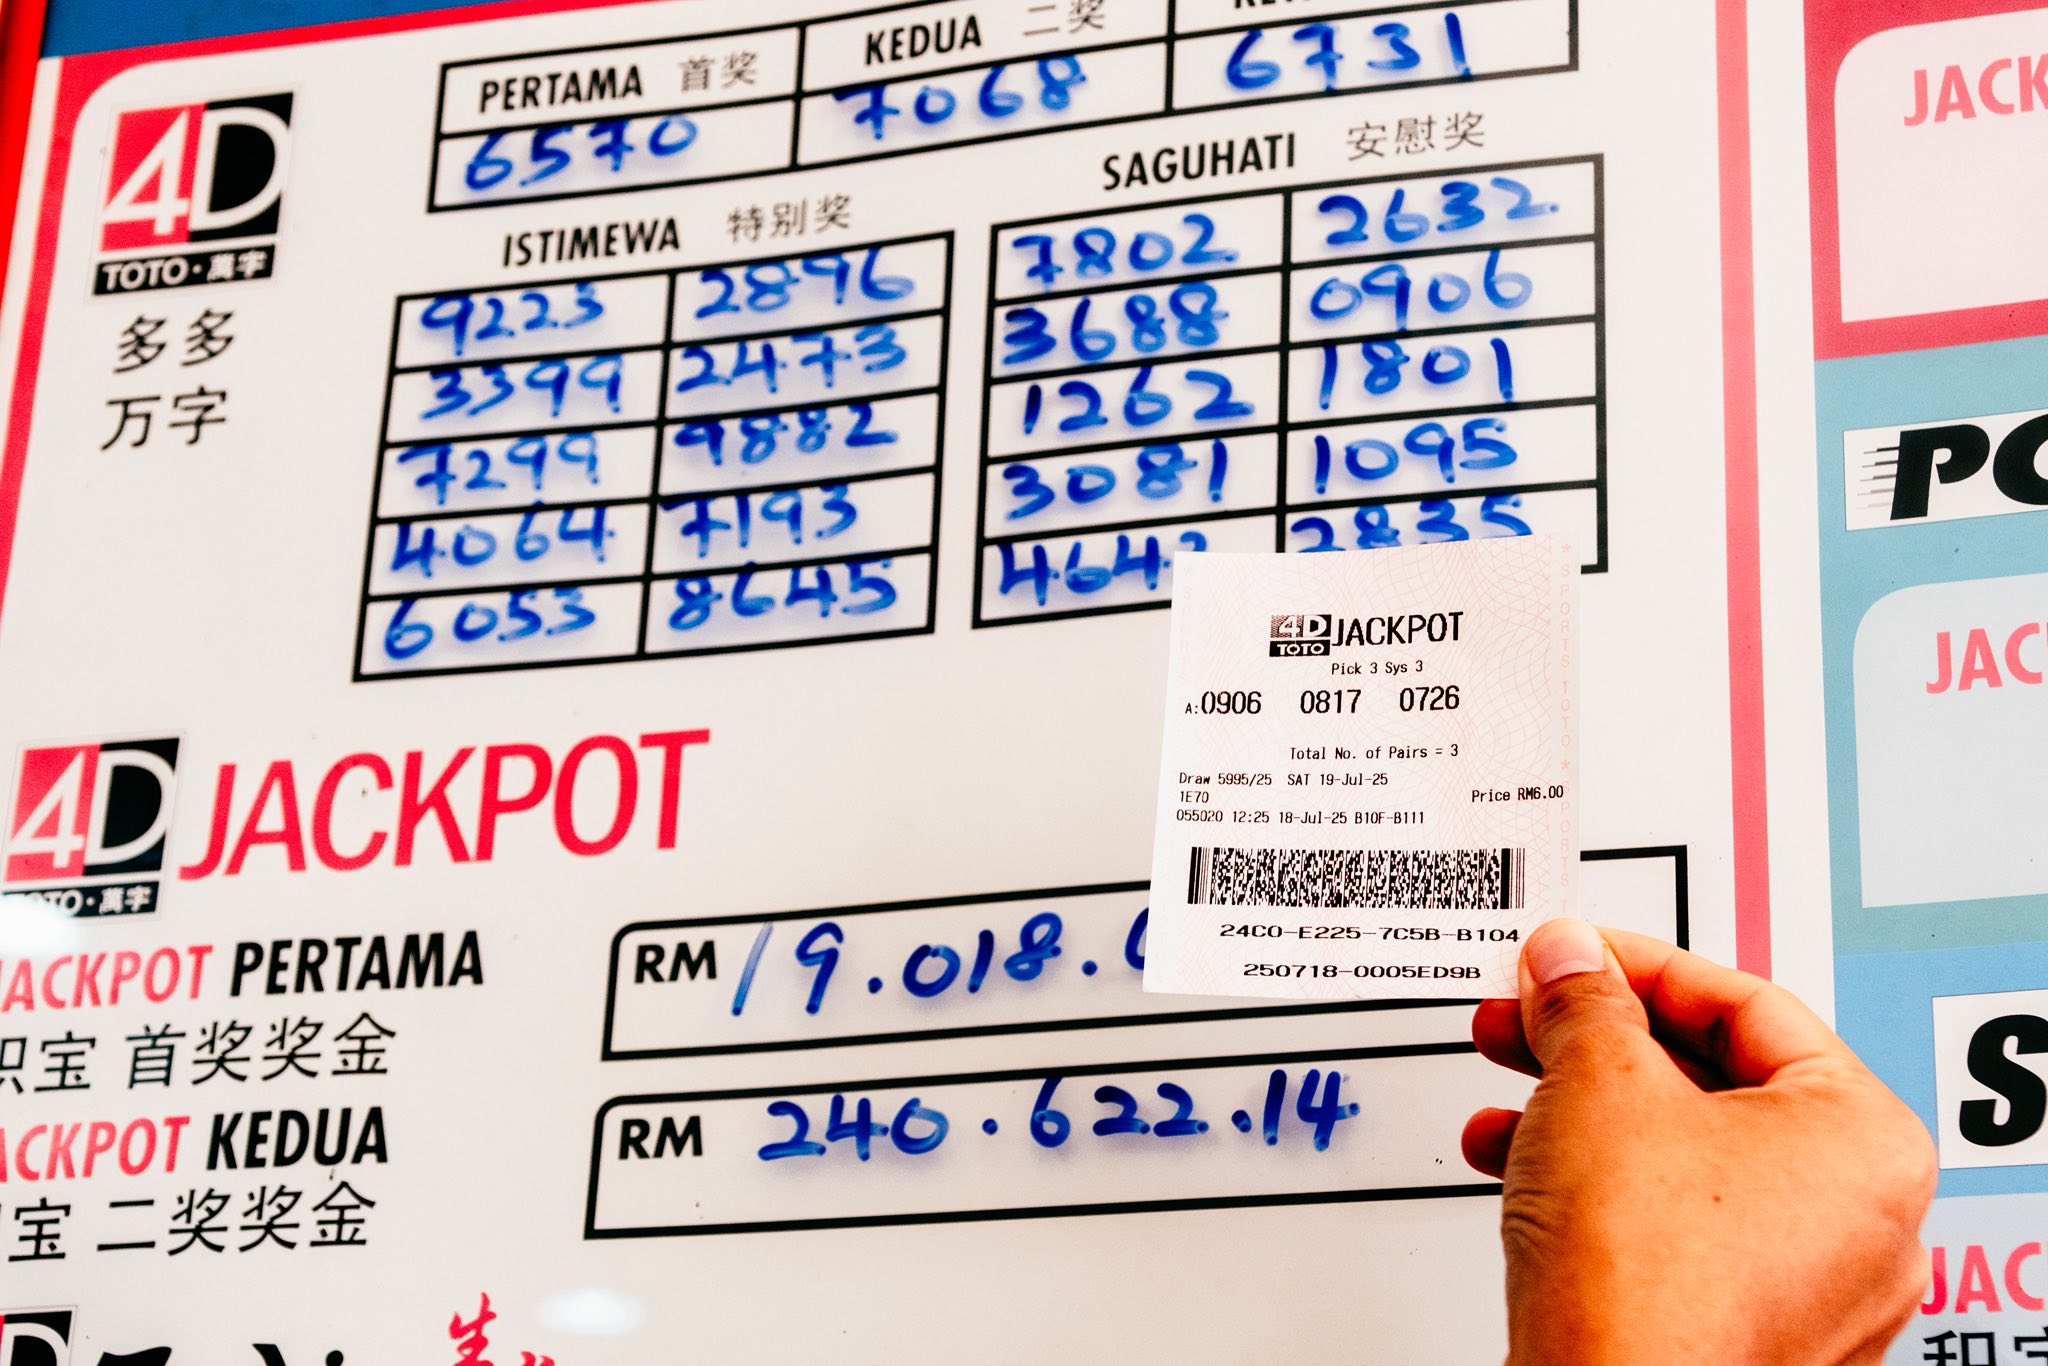 PERTAMA 首奖 KEDUA 二奖
6570 7068 6731
4D
TOTO·萬字
多多
万字
ISTIMEWA 特别奖
9223 2896
3399 2473
7299 9882
4064 7193
6053 8645
SAGUHATI 安慰奖
7802 2632
3688 0906
1262 1801
3081 1095
464 2835
4D JACKPOT
TOTO·萬字
JACKPOT PERTAMA
积宝 首奖奖金
RM 19.018.
JACKPOT KEDUA
宝 二奖奖金
RM 240.622.14
4D TOTO JACKPOT
Pick 3 Sys 3
A:0906 0817 0726
Total No. of Pairs = 3
Draw 5995/25 SAT 19-Jul-25
1E70 Price RM6.00
055020 12:25 18-Jul-25 B10F-B111
24C0-E225-7C5B-B104
250718-0005ED9B
JACK
PO
JAC
S
JAC